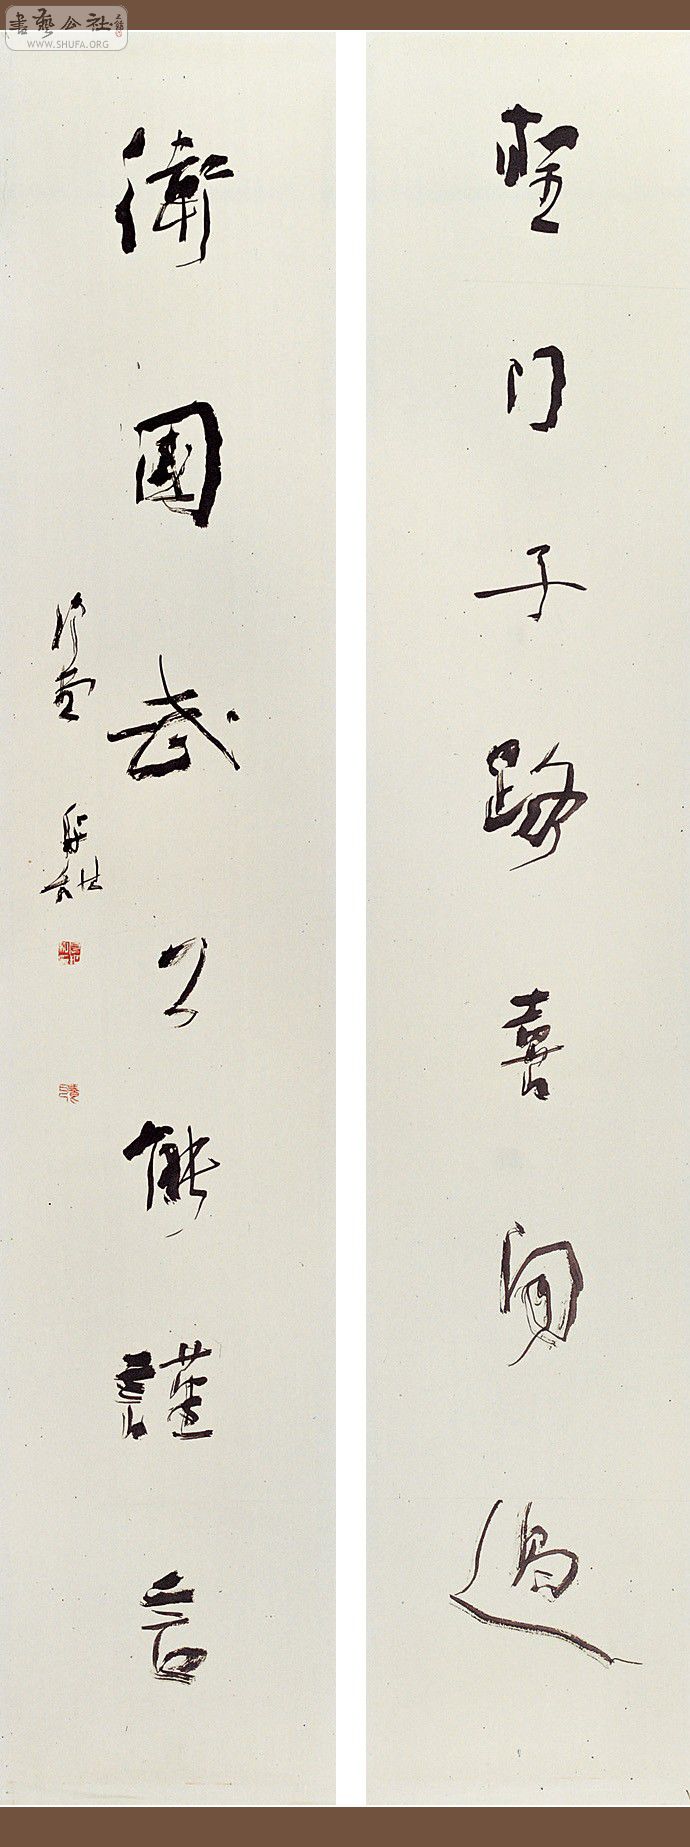 聖門子路喜聞過
衛國武公能謹言
書藝公社
WWW.SHUFA.ORG